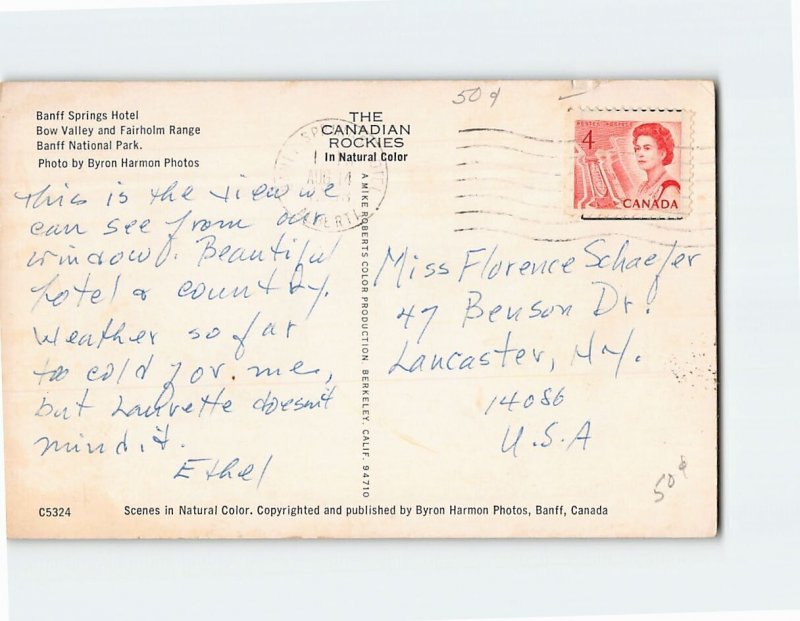 50¢
Banff Springs Hotel
Bow Valley and Fairholm Range
Banff National Park.
Photo by Byron Harmon Photos
THE
CANADIAN
ROCKIES
In Natural Color
4
CANADA
AUG 14
This is the view we
can see from our
window. Beautiful
hotel & country.
Weather so far
too cold for me,
but Laurette doesn't
mind it.
Ethel
A MIKE ROBERTS COLOR PRODUCTION, BERKELEY, CALIF. 94710
Miss Florence Schaefer
47 Benson Dr.
Lancaster, N.Y.
14086
U.S.A
50¢
C5324
Scenes in Natural Color. Copyrighted and published by Byron Harmon Photos, Banff, Canada